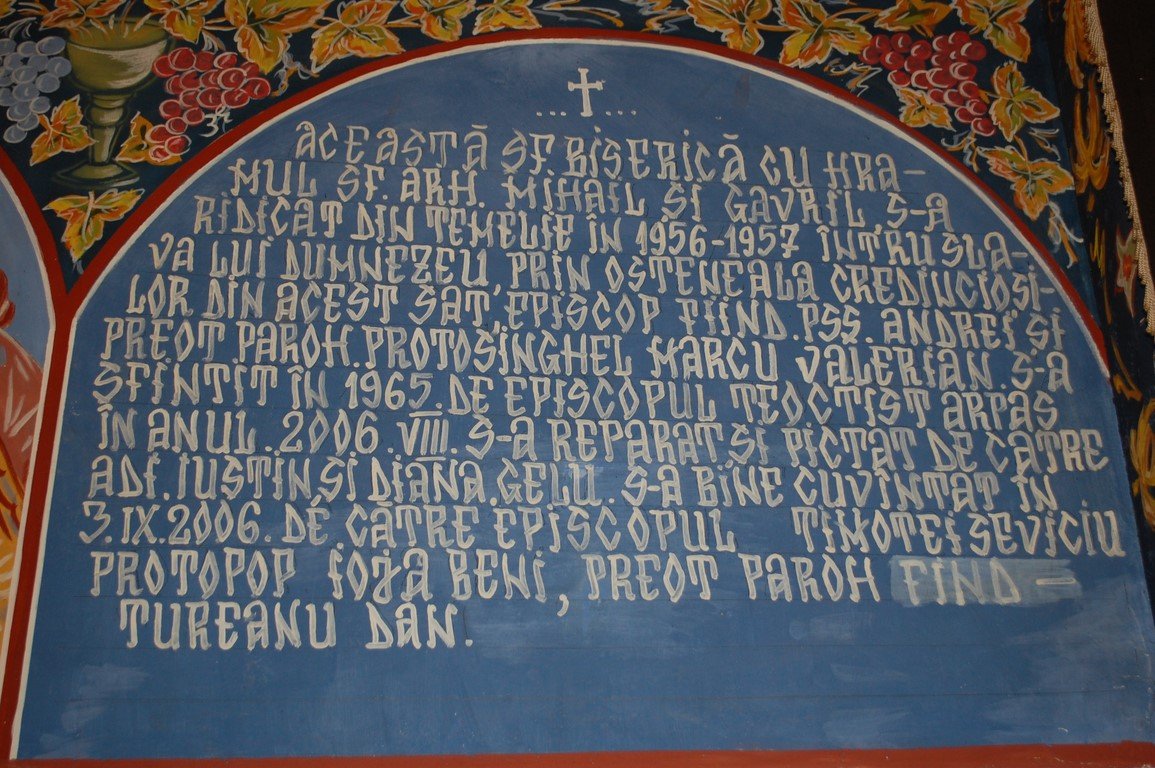 ACEASTĂ SF BISERICĂ CU HRA-
MUL SF. ARH. MIHAIL SI GAVRIL, S-A
RIDICAT DIN TEMELIE ÎN 1956-1957 ÎNTRU SLA-
VA LUI DUMNEZEU, PRIN OSTENEALA CREDINCIOSI-
LOR DIN ACEST SAT, EPISCOP FIIND. PSS. ANDREI, SI
PREOT PAROH. PROTOSINGHEL MARCU VALERIAN. S-A
SFINTIT ÎN 1965. DE EPISCOPUL TEOCTIST ARPAS
ÎN ANUL. 2006. VIII. S-A REPARAT SI PICTAT DE CATRE
ADI. IUSTIN, SI DIANA. GELU. S-A BINE CUVINTAT ÎN
3.IX.2006. DE CĂTRE EPISCOPUL TIMOTEI SEVICIU
PROTOPOP FOJA BENI, PREOT PAROH FIIND -
TUREANU DAN.